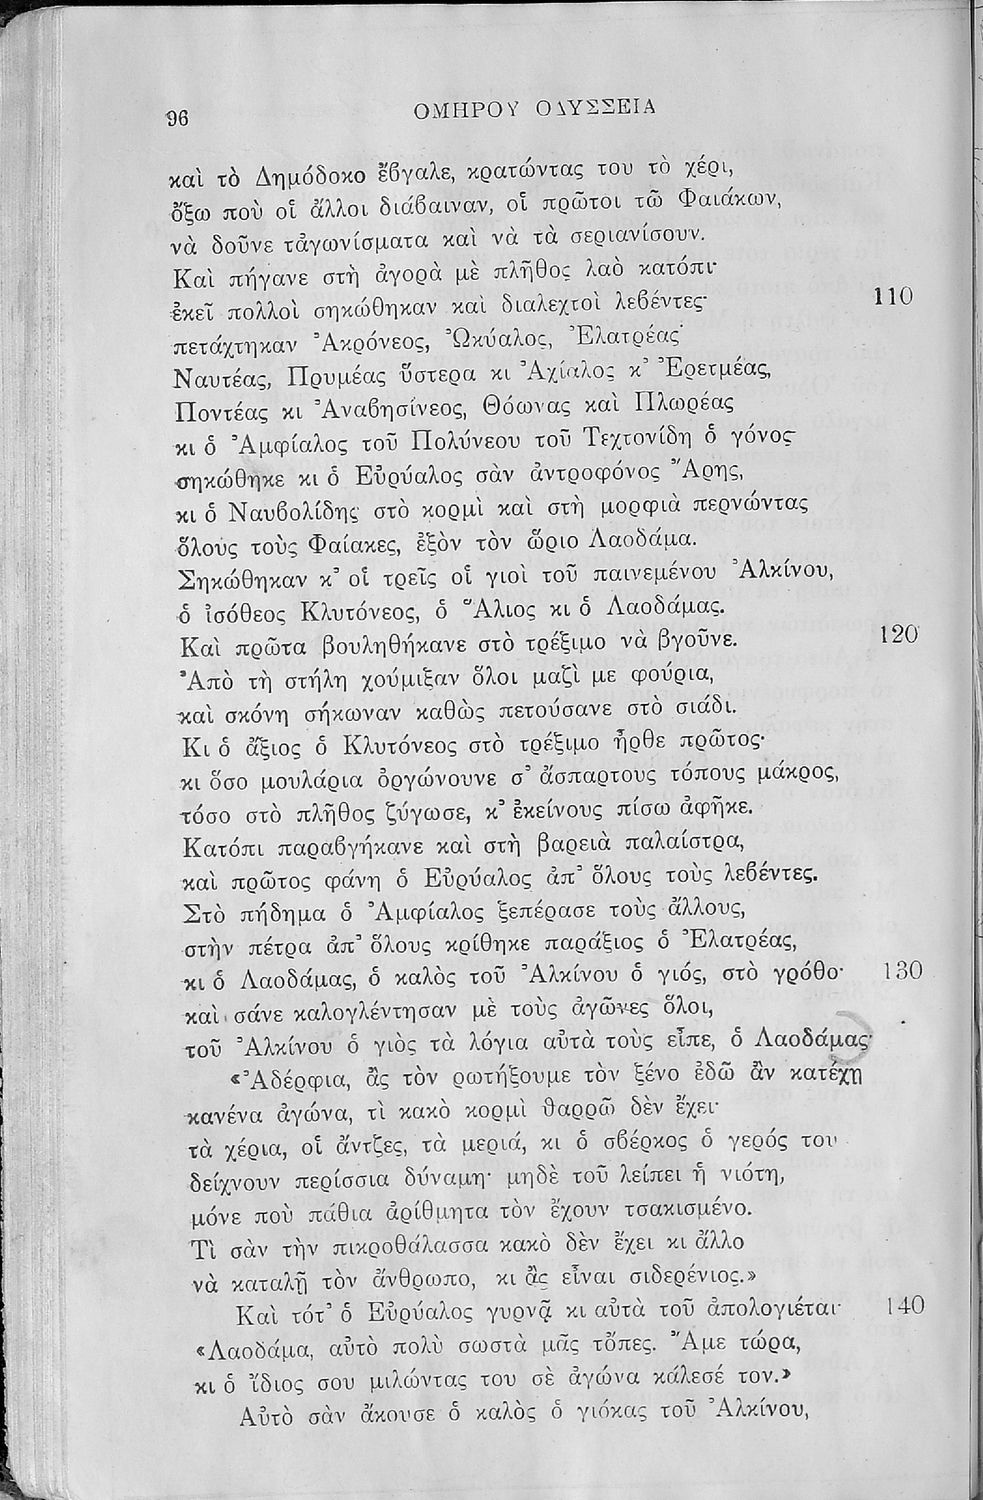 96
ΟΜΗΡΟΥ ΟΔΥΣΣΕΙΑ
καὶ τὸ Δημόδοκο ἔβγαλε, κρατώντας του τὸ χέρι,
ὄξω ποὺ οἱ ἄλλοι διάβαιναν, οἱ πρῶτοι τῶ Φαιάκων,
νὰ δοῦνε τἀγωνίσματα καὶ νὰ τὰ σεριανίσουν.
Καὶ πήγανε στὴ ἀγορὰ μὲ πλῆθος λαὸ κατόπι·
ἐκεῖ πολλοὶ σηκώθηκαν καὶ διαλεχτοὶ λεβέντες· 110
πετάχτηκαν Ἀκρόνεος, Ὠκύαλος, Ἐλατρέας·
Ναυτέας, Πρυμέας ὕστερα κι Ἀχίαλος κ᾿ Ἐρετμέας,
Ποντέας κι Ἀναβησίνεος, Θόωνας καὶ Πλωρέας
κι ὁ Ἀμφίαλος τοῦ Πολύνεου τοῦ Τεχτονίδη ὁ γόνος·
σηκώθηκε κι ὁ Εὐρύαλος σὰν ἀντροφόνος Ἄρης,
κι ὁ Ναυβολίδης στὸ κορμὶ καὶ στὴ μορφιὰ περνώντας
ὅλους τοὺς Φαίακες, ἐξὸν τὸν ὥριο Λαοδάμα.
Σηκώθηκαν κ᾿ οἱ τρεῖς οἱ γιοὶ τοῦ παινεμένου Ἀλκίνου,
ὁ ἰσόθεος Κλυτόνεος, ὁ Ἅλιος κι ὁ Λαοδάμας.
Καὶ πρῶτα βουληθήκανε στὸ τρέξιμο νὰ βγοῦνε. 120
Ἀπὸ τὴ στήλη χούμιξαν ὅλοι μαζὶ με φούρια,
καὶ σκόνη σήκωναν καθὼς πετούσανε στὸ σιάδι.
Κι ὁ ἄξιος ὁ Κλυτόνεος στὸ τρέξιμο ἦρθε πρῶτος·
κι ὅσο μουλάρια ὀργώνουνε σ᾿ ἄσπαρτους τόπους μάκρος,
τόσο στὸ πλῆθος ζύγωσε, κ᾿ ἐκείνους πίσω ἀφῆκε.
Κατόπι παραβγήκανε καὶ στὴ βαρειὰ παλαίστρα,
καὶ πρῶτος φάνη ὁ Εὐρύαλος ἀπ᾿ ὅλους τοὺς λεβέντες.
Στὸ πήδημα ὁ Ἀμφίαλος ξεπέρασε τοὺς ἄλλους,
στὴν πέτρα ἀπ᾿ ὅλους κρίθηκε παράξιος ὁ Ἐλατρέας,
κι ὁ Λαοδάμας, ὁ καλὸς τοῦ Ἀλκίνου ὁ γιός, στὸ γρόθο· 130
καὶ σάνε καλογλέντησαν μὲ τοὺς ἀγῶνες ὅλοι,
τοῦ Ἀλκίνου ὁ γιὸς τὰ λόγια αὐτὰ τοὺς εἶπε, ὁ Λαοδάμας·
«Ἀδέρφια, ἂς τὸν ρωτήξουμε τὸν ξένο ἐδῶ ἂν κατέχῃ
κανένα ἀγώνα, τὶ κακὸ κορμὶ θαρρῶ δὲν ἔχει·
τὰ χέρια, οἱ ἄντζες, τὰ μεριά, κι ὁ σβέρκος ὁ γερός του
δείχνουν περίσσια δύναμη· μηδὲ τοῦ λείπει ἡ νιότη,
μόνε ποὺ πάθια ἀρίθμητα τὸν ἔχουν τσακισμένο.
Τὶ σὰν τὴν πικροθάλασσα κακὸ δὲν ἔχει κι ἄλλο
νὰ καταλῇ τὸν ἄνθρωπο, κι ἂς εἶναι σιδερένιος.»
Καὶ τότ᾿ ὁ Εὐρύαλος γυρνᾷ κι αὐτὰ τοῦ ἀπολογιέται· 140
«Λαοδάμα, αὐτὸ πολὺ σωστὰ μᾶς τὄπες. Ἄμε τώρα,
κι ὁ ἴδιος σου μιλώντας του σὲ ἀγώνα κάλεσέ τον.»
Αὐτὸ σὰν ἄκουσε ὁ καλὸς ὁ γιόκας τοῦ Ἀλκίνου,